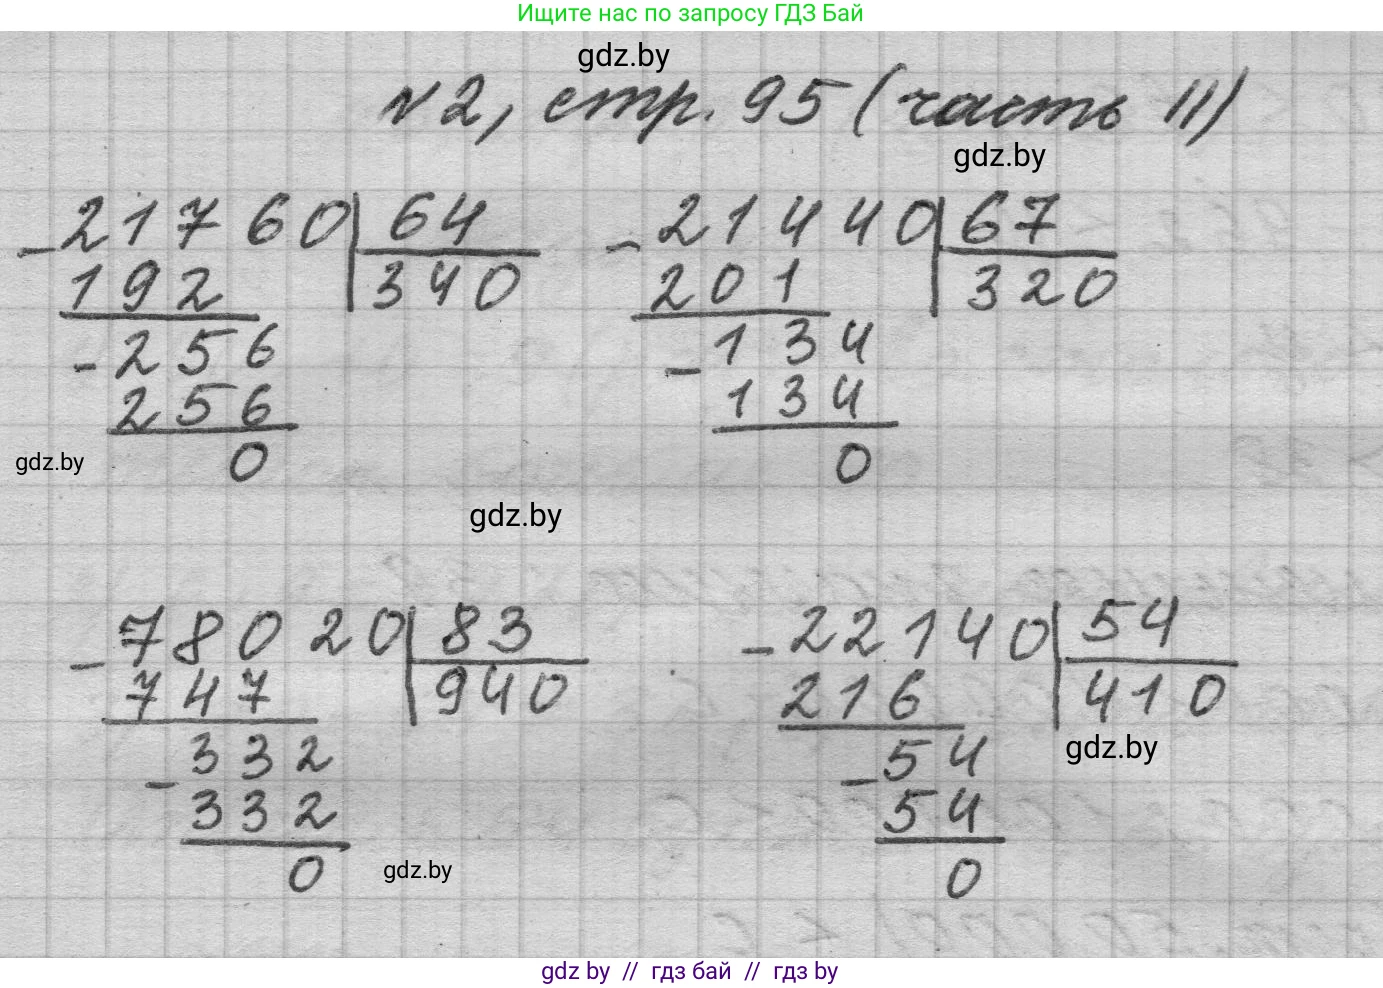 Ищите нас по запросу ГДЗ Бай
gdz.by
№2, стр. 95 (часть II)
gdz.by
-21760 64
192 340
-256
256
0
-21440 67
201 320
-134
134
0
gdz.by
gdz.by
-78020 83
747 940
-332
332
0
-22140 54
216 410
gdz.by
-54
54
0
gdz.by
gdz by // гдз бай // гдз by